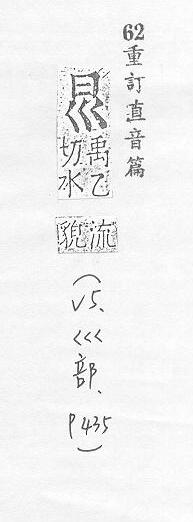 62
重訂直音篇
禹乙
切水
流
貎
（V5、巛部、P435）